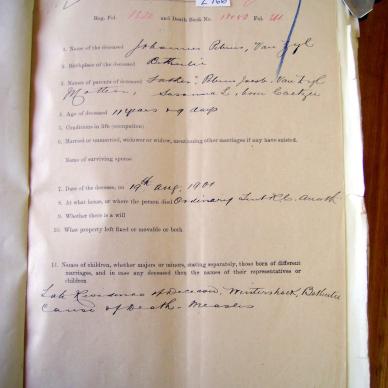 Reg. Fol. and Death Book No. Fol.
1. Name of the deceased Johannes Petrus, Van Zyl
2. Birthplace of the deceased Bethulie
3. Names of parents of deceased Father: Petrus Jacob. Van Zyl
Mother, Susanna L. born Coetzer
4. Age of deceased 11 years & 9 days
5. Conditions in life (occupation)
6. Married or unmarried, widower or widow, mentioning other marriages if any have existed.
Name of surviving spouse
7. Date of the decease, on 19th Aug. 1901
8. At what house, or where the person died Ordinary Tent R.C.
9. Whether there is a will
10. What property left fixed or movable or both
11. Names of children, whether majors or minors, stating separately, those born of different
marriages, and in case any deceased then the names of their representatives or
children
Late Residence of Deceased, Bethulie
Cause of Death - Measles